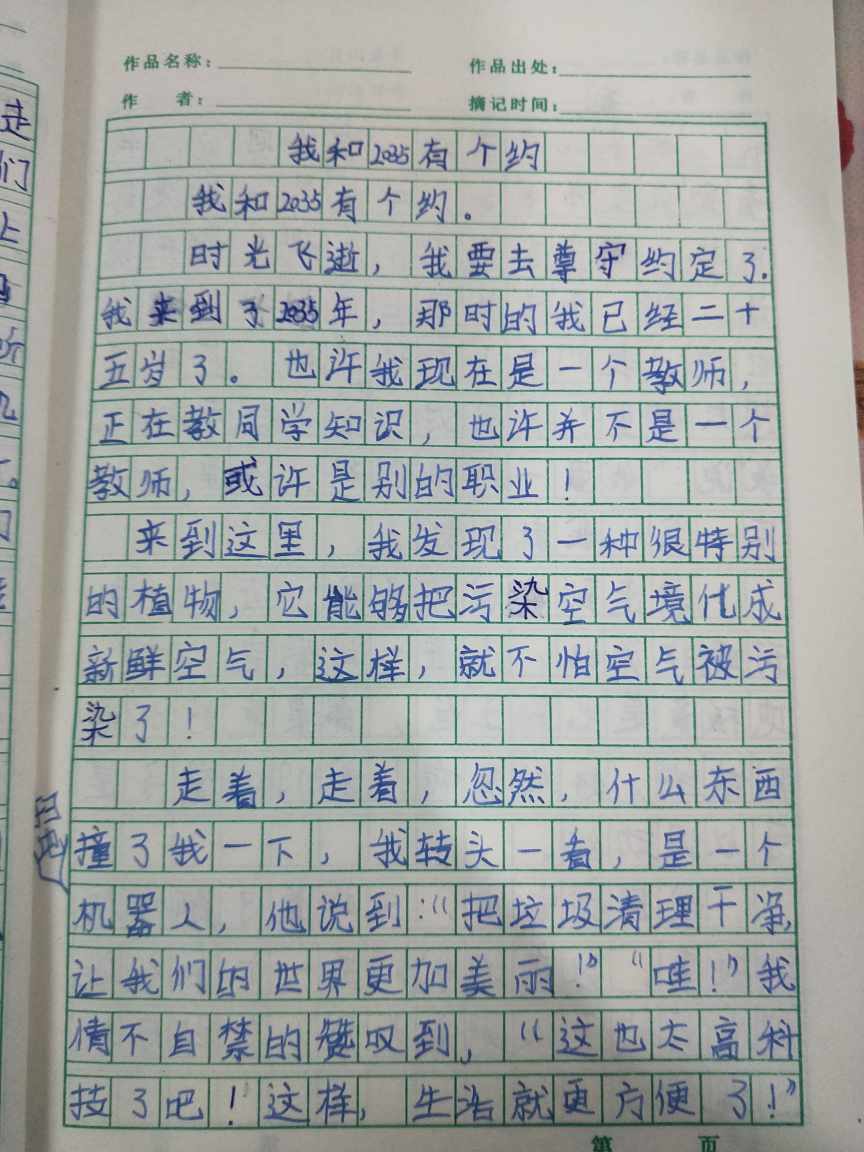 作品名称：
作品出处：
作 者：
摘记时间：
我和2035有个约
我和2035有个约。
时光飞逝，我要去尊守约定了.
我来到了2035年，那时的我已经二十
五岁了。也许我现在是一个教师，
正在教同学知识，也许并不是一个
教师，或许是别的职业！
来到这里，我发现了一种很特别
的植物，它能够把污染空气境化成
新鲜空气，这样，就不怕空气被污
染了！
走着，走着，忽然，什么东西
撞了我一下，我转头一看，是一个
机器人，他说到：“把垃圾清理干净，
让我们的世界更加美丽！”“哇！”我
情不自禁的赞叹到，“这也太高科
技了吧！这样，生活就更方便了！”
第 页